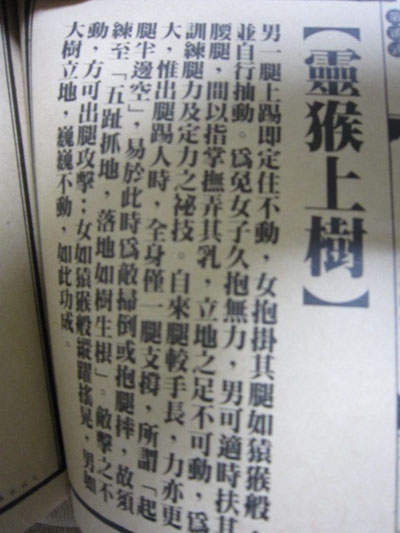 【靈猴上樹】
男一腿上踢即定住不動，女抱掛其腿如猿猴般，
並自行抽動。為免女子久抱無力，男可適時扶其
腰腿，間以指掌撫弄其乳，立地之足不可動，為
訓練腿力及定力之祕技。自來腿較手長，力亦更
大，惟出腿踢人時，全身僅一腿支撐，所謂「起
腿半邊空」，易於此時為敵掃倒或抱腿摔，故須
練至「五趾抓地，落地如樹生根」。敵擊之不
動，方可出腿攻擊；女如猿猴般縱躍搖晃，男如
大樹立地，巍巍不動，如此功成。